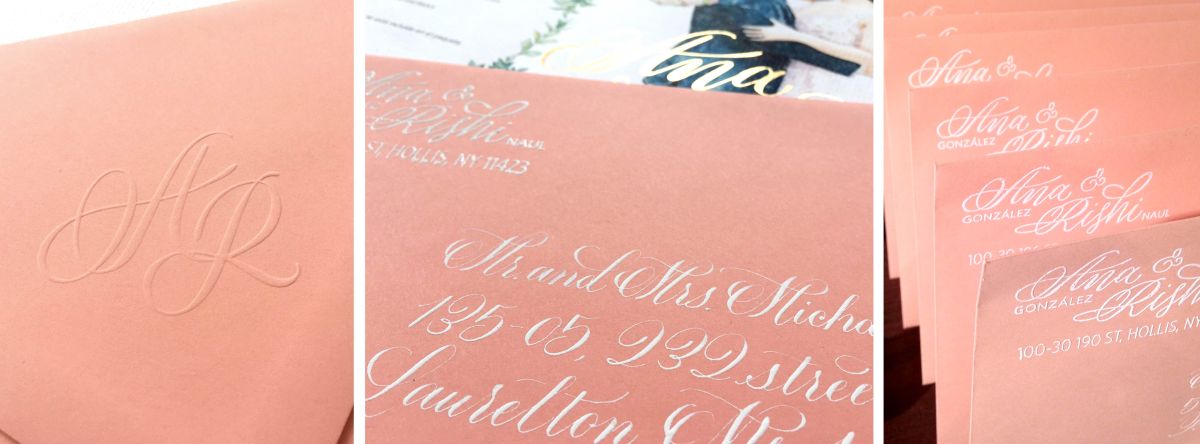 AR
Ana
Ana &
Rishi NAUL
ST, HOLLIS, NY 11423
Mr. and Mrs. Micha
135-05, 232 stree
Laurelton
Ana &
Ana &
GONZÁLEZ Rishi
Ana &
GONZÁLEZ Rishi NAUL
100-30 190
Ana &
GONZÁLEZ Rishi
100-30 190 ST, HOLLIS, NY